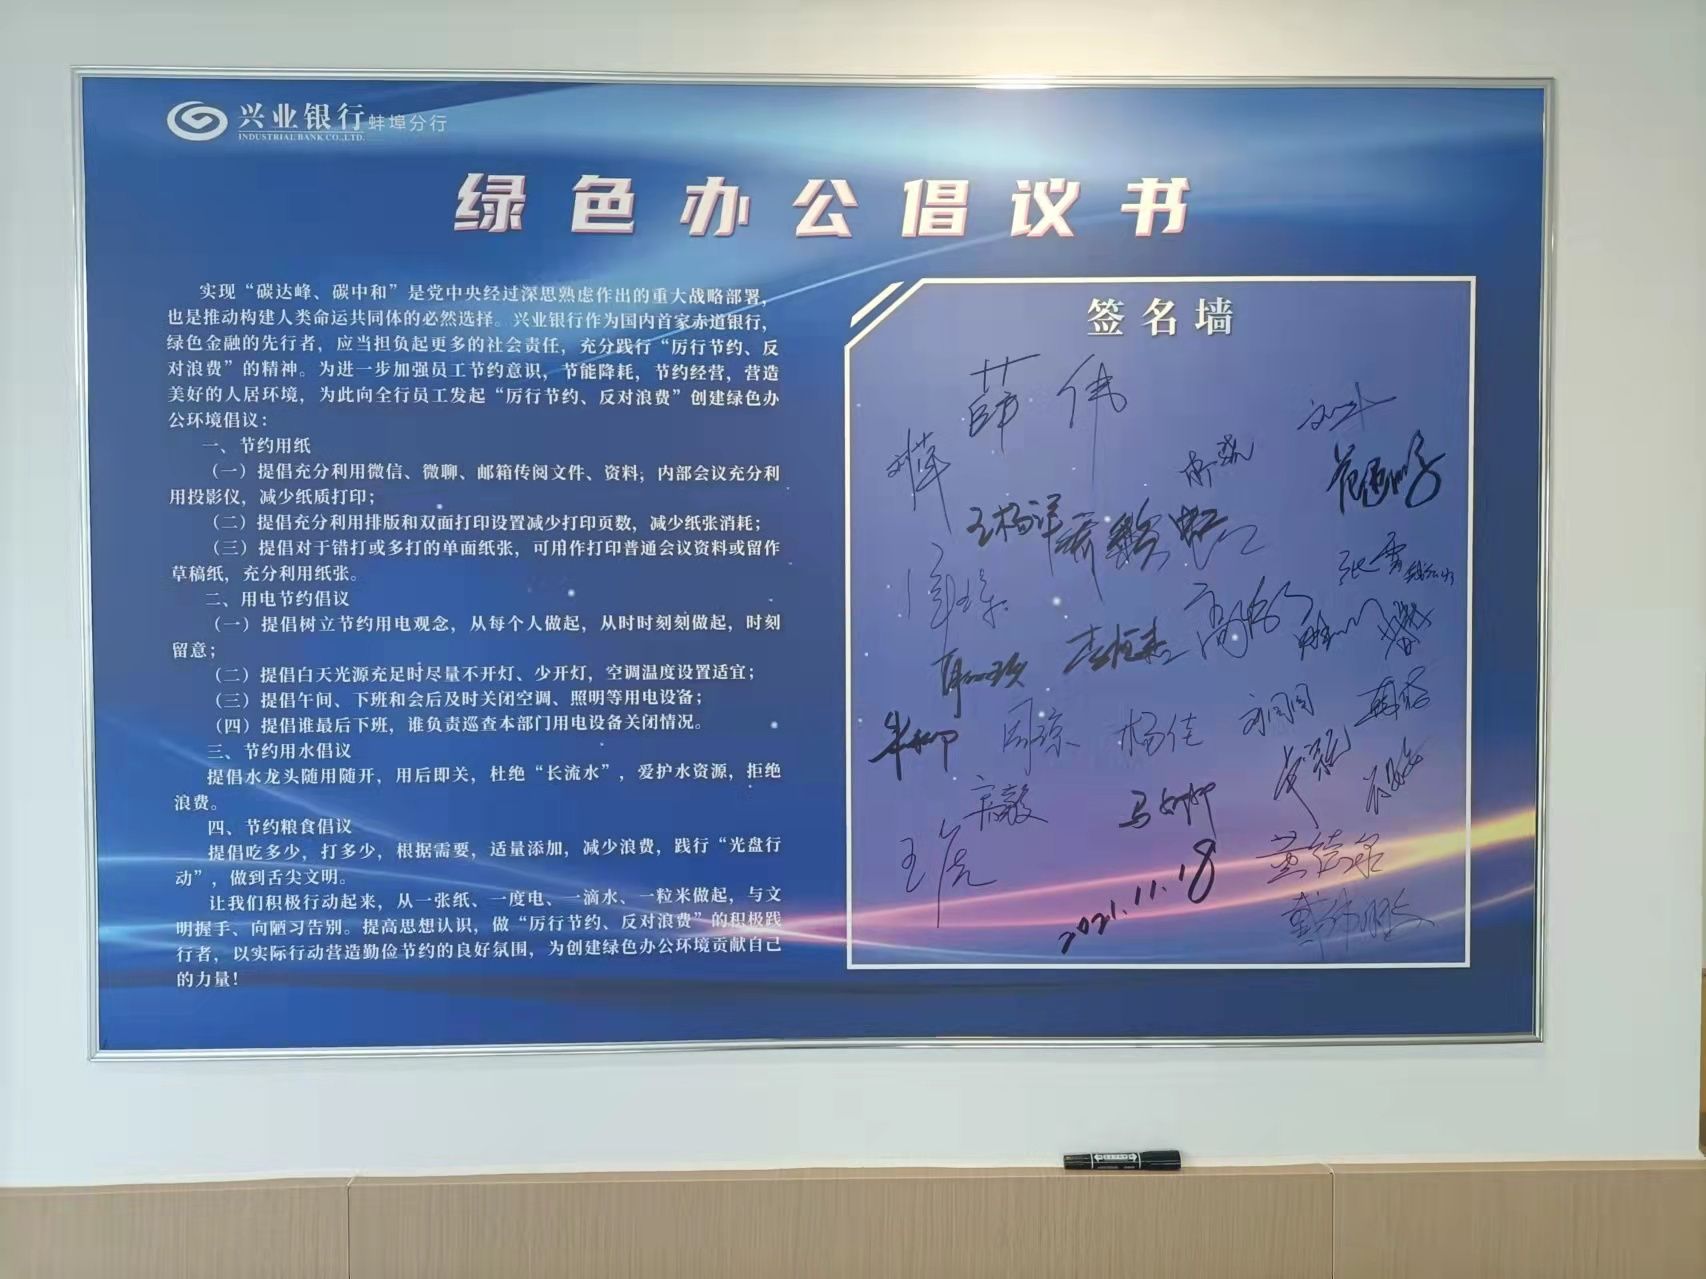 兴业银行蚌埠分行
INDUSTRIAL BANK CO.,LTD.
绿色办公倡议书
实现“碳达峰、碳中和”是党中央经过深思熟虑作出的重大战略部署，
也是推动构建人类命运共同体的必然选择。兴业银行作为国内首家赤道银行，
绿色金融的先行者，应当担负起更多的社会责任，充分践行“厉行节约、反
对浪费”的精神。为进一步加强员工节约意识，节能降耗，节约经营，营造
美好的人居环境，为此向全行员工发起“厉行节约、反对浪费”创建绿色办
公环境倡议：
一、节约用纸
（一）提倡充分利用微信、微聊、邮箱传阅文件、资料；内部会议充分利
用投影仪，减少纸质打印；
（二）提倡充分利用排版和双面打印设置减少打印页数，减少纸张消耗；
（三）提倡对于错打或多打的单面纸张，可用作打印普通会议资料或留作
草稿纸，充分利用纸张。
二、用电节约倡议
（一）提倡树立节约用电观念，从每个人做起，从时时刻刻做起，时刻
留意；
（二）提倡白天光源充足时尽量不开灯、少开灯，空调温度设置适宜；
（三）提倡午间、下班和会后及时关闭空调、照明等用电设备；
（四）提倡谁最后下班，谁负责巡查本部门用电设备关闭情况。
三、节约用水倡议
提倡水龙头随用随开，用后即关，杜绝“长流水”，爱护水资源，拒绝
浪费。
四、节约粮食倡议
提倡吃多少，打多少，根据需要，适量添加，减少浪费，践行“光盘行
动”，做到舌尖文明。
让我们积极行动起来，从一张纸、一度电、一滴水、一粒米做起，与文
明握手、向陋习告别。提高思想认识，做“厉行节约、反对浪费”的积极践
行者，以实际行动营造勤俭节约的良好氛围，为创建绿色办公环境贡献自己
的力量！
签名墙
薛伟
刘萍
王杨洋
张雷
李恒杰
周琼
杨佳
刘闰闰
宋毅
马婷婷
王虎
2021.11.18